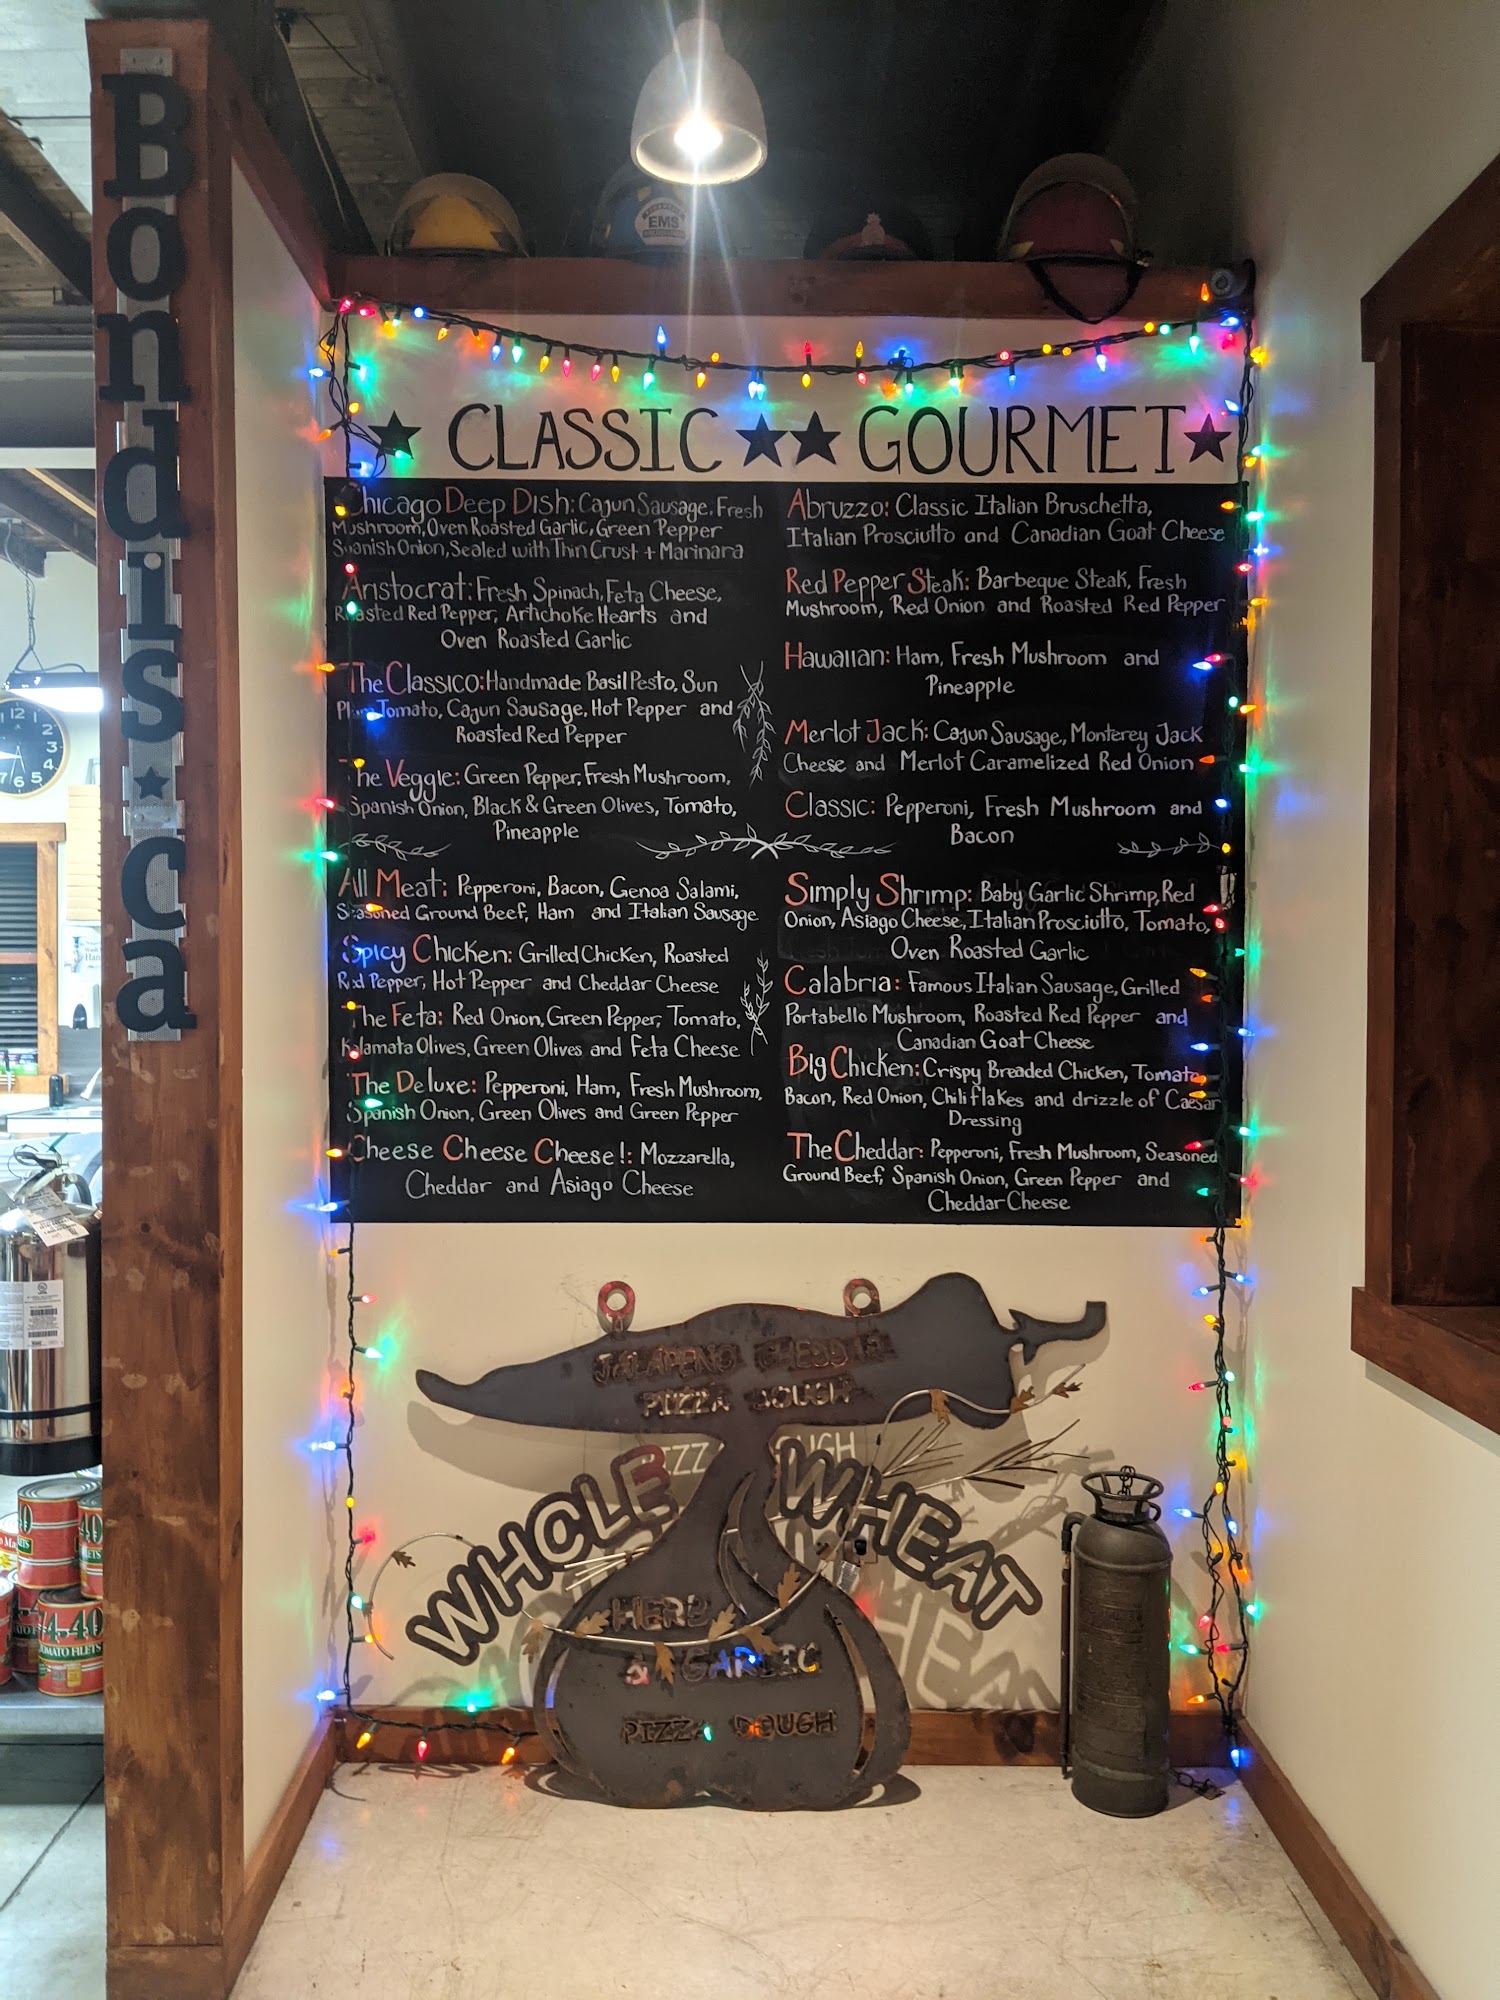 Bondis.ca
EMS
★ CLASSIC ★★ GOURMET ★
Chicago Deep Dish: Cajun Sausage, Fresh
Mushroom, Oven Roasted Garlic, Green Pepper
Spanish Onion, Sealed with Thin Crust + Marinara
Aristocrat: Fresh Spinach, Feta Cheese,
Roasted Red Pepper, Artichoke Hearts and
Oven Roasted Garlic
The Classico: Handmade Basil Pesto, Sun
Plum Tomato, Cajun Sausage, Hot Pepper and
Roasted Red Pepper
The Veggie: Green Pepper, Fresh Mushroom,
Spanish Onion, Black & Green Olives, Tomato,
Pineapple
All Meat: Pepperoni, Bacon, Genoa Salami,
Seasoned Ground Beef, Ham and Italian Sausage
Spicy Chicken: Grilled Chicken, Roasted
Red Pepper, Hot Pepper and Cheddar Cheese
The Feta: Red Onion, Green Pepper, Tomato,
Kalamata Olives, Green Olives and Feta Cheese
The Deluxe: Pepperoni, Ham, Fresh Mushroom,
Spanish Onion, Green Olives and Green Pepper
Cheese Cheese Cheese!: Mozzarella,
Cheddar and Asiago Cheese
Abruzzo: Classic Italian Bruschetta,
Italian Prosciutto and Canadian Goat Cheese
Red Pepper Steak: Barbeque Steak, Fresh
Mushroom, Red Onion and Roasted Red Pepper
Hawaiian: Ham, Fresh Mushroom and
Pineapple
Merlot Jack: Cajun Sausage, Monterey Jack
Cheese and Merlot Caramelized Red Onion
Classic: Pepperoni, Fresh Mushroom and
Bacon
Simply Shrimp: Baby Garlic Shrimp, Red
Onion, Asiago Cheese, Italian Prosciutto, Tomato,
Oven Roasted Garlic
Calabria: Famous Italian Sausage, Grilled
Portabello Mushroom, Roasted Red Pepper and
Canadian Goat Cheese
Big Chicken: Crispy Breaded Chicken, Tomato,
Bacon, Red Onion, Chili flakes and drizzle of Caesar
Dressing
The Cheddar: Pepperoni, Fresh Mushroom, Seasoned
Ground Beef, Spanish Onion, Green Pepper and
Cheddar Cheese
JALAPENO CHEDDAR
PIZZA DOUGH
WHOLE WHEAT
HERB
& GARLIC
PIZZA DOUGH
12
1
2
3
4
5
6
7
74-40
TOMATO FILETS